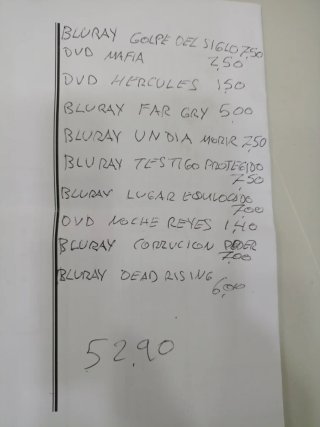 BLURAY GOLPE DEL SIGLO 7,50
DVD MAFIA 2,50
DVD HERCULES 1,50
BLURAY FAR GRY 5,00
BLURAY UN DIA MORIR 7,50
BLURAY TESTIGO PROTEGIDO
7,50
BLURAY LUGAR EQUIVOCADO
7,00
DVD NOCHE REYES 1,40
BLURAY CORRUCION PODER
7,00
BLURAY DEAD RISING
6,00
52,90